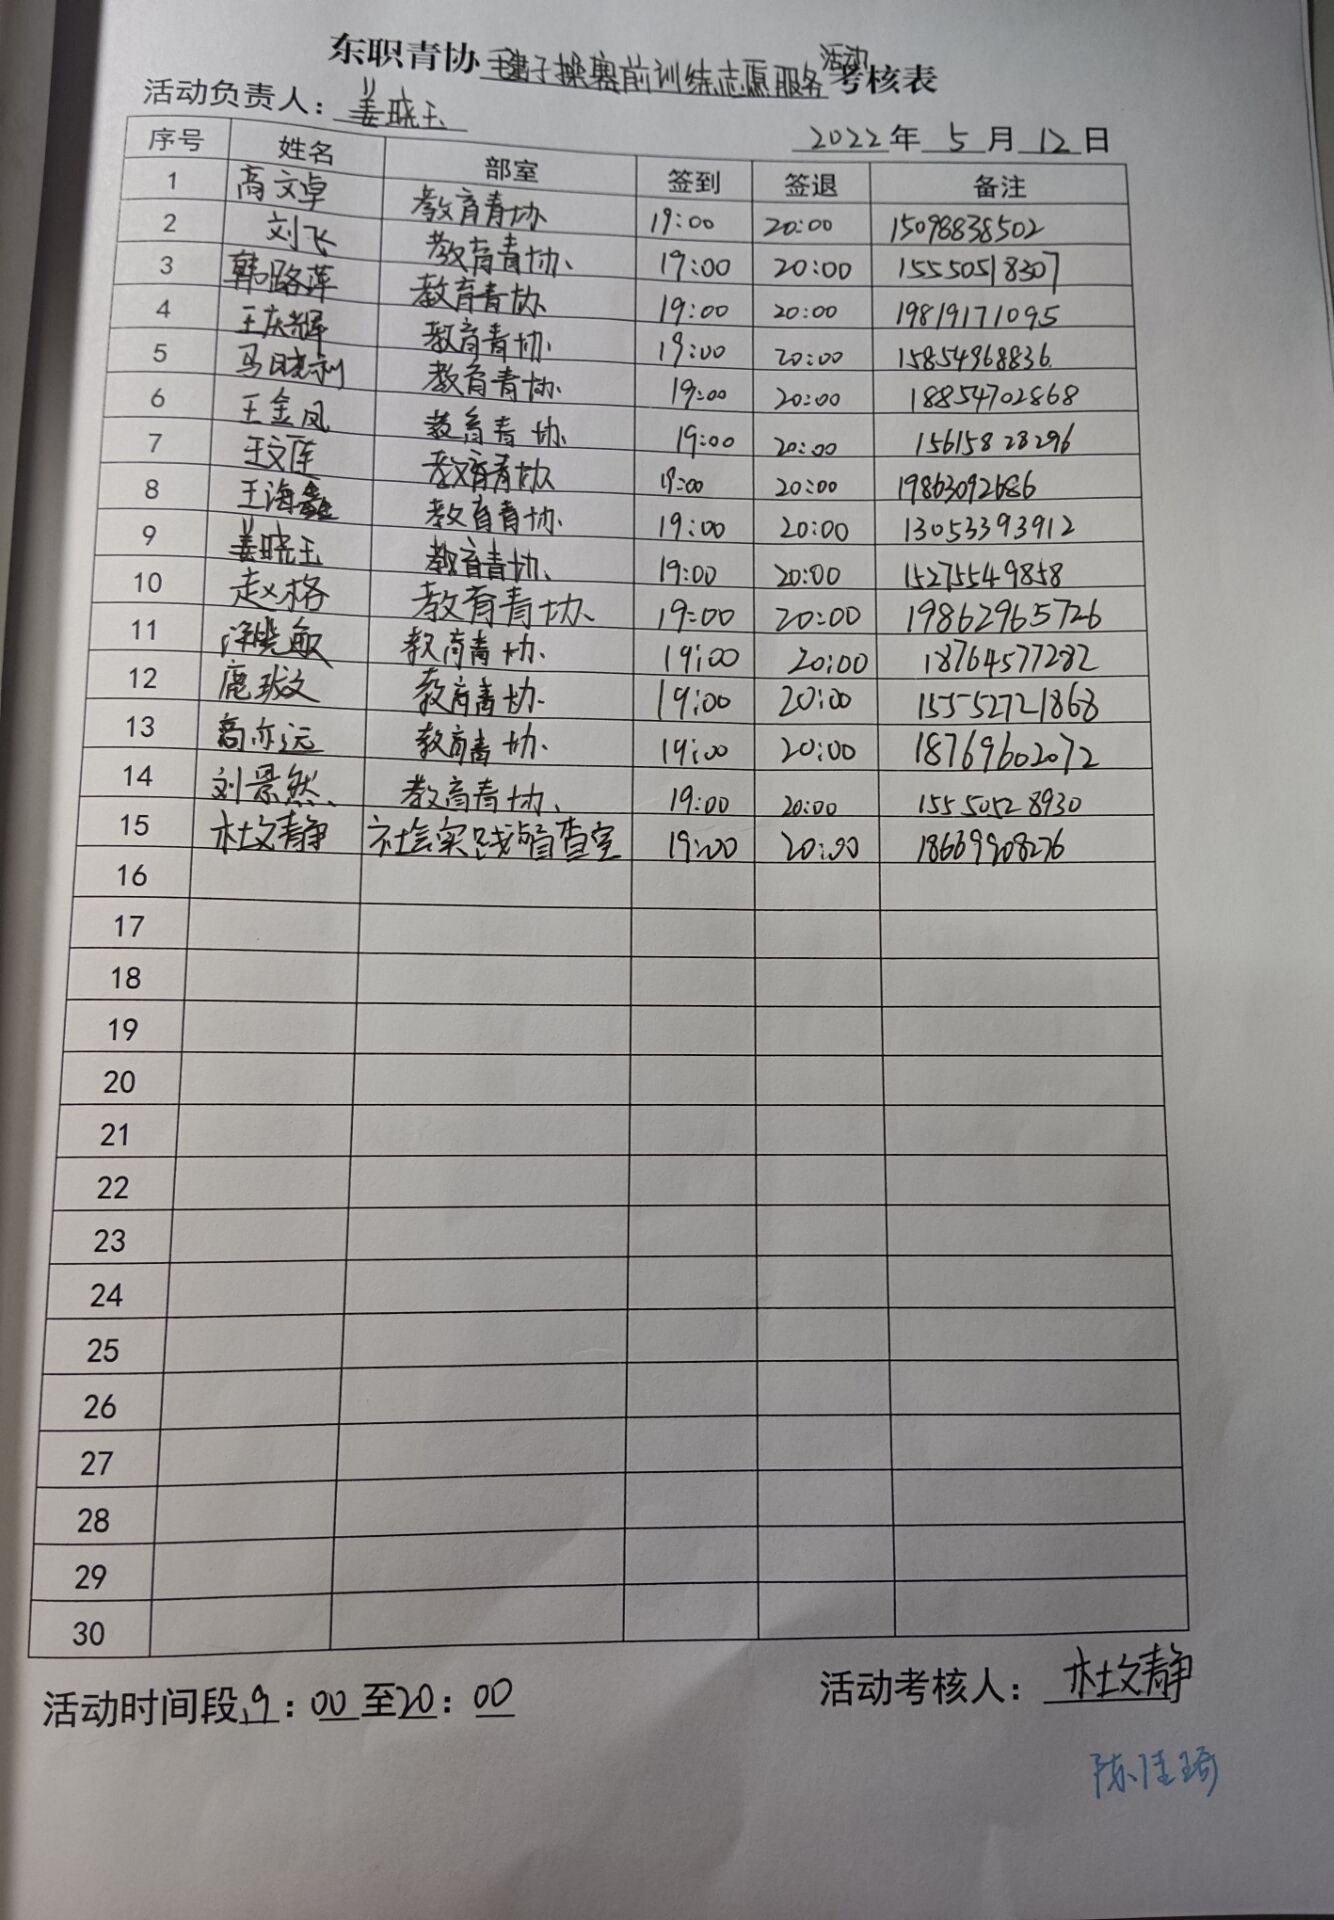 东职青协毽子操赛前训练志愿服务活动考核表
活动负责人：姜晓玉
2022年 5 月 12 日
序号 姓名 部室 签到 签退 备注
1 高文卓 教育青协 19:00 20:00 15098838502
2 刘飞 教育青协 19:00 20:00 15550518307
3 韩路萍 教育青协 19:00 20:00 19819171095
4 王庆辉 教育青协 19:00 20:00 15854968836
5 马晓利 教育青协 19:00 20:00 18854702868
6 王金凤 教育青协 19:00 20:00 15615828296
7 王文莲 教育青协 19:00 20:00 19863092686
8 王海鑫 教育青协 19:00 20:00 13053393912
9 姜晓玉 教育青协 19:00 20:00 15275549858
10 赵格 教育青协 19:00 20:00 19862965726
11 晓敏 教育青协 19:00 20:00 18764577282
12 鹿玻文 教育青协 19:00 20:00 15552721868
13 高亦远 教育青协 19:00 20:00 18769602072
14 刘景然 教育青协 19:00 20:00 15550528930
15 杜文静 社会实践督查室 19:00 20:00 18669908276
16
17
18
19
20
21
22
23
24
25
26
27
28
29
30
活动时间段19：00至20：00
活动考核人：杜文静
陈佳琦